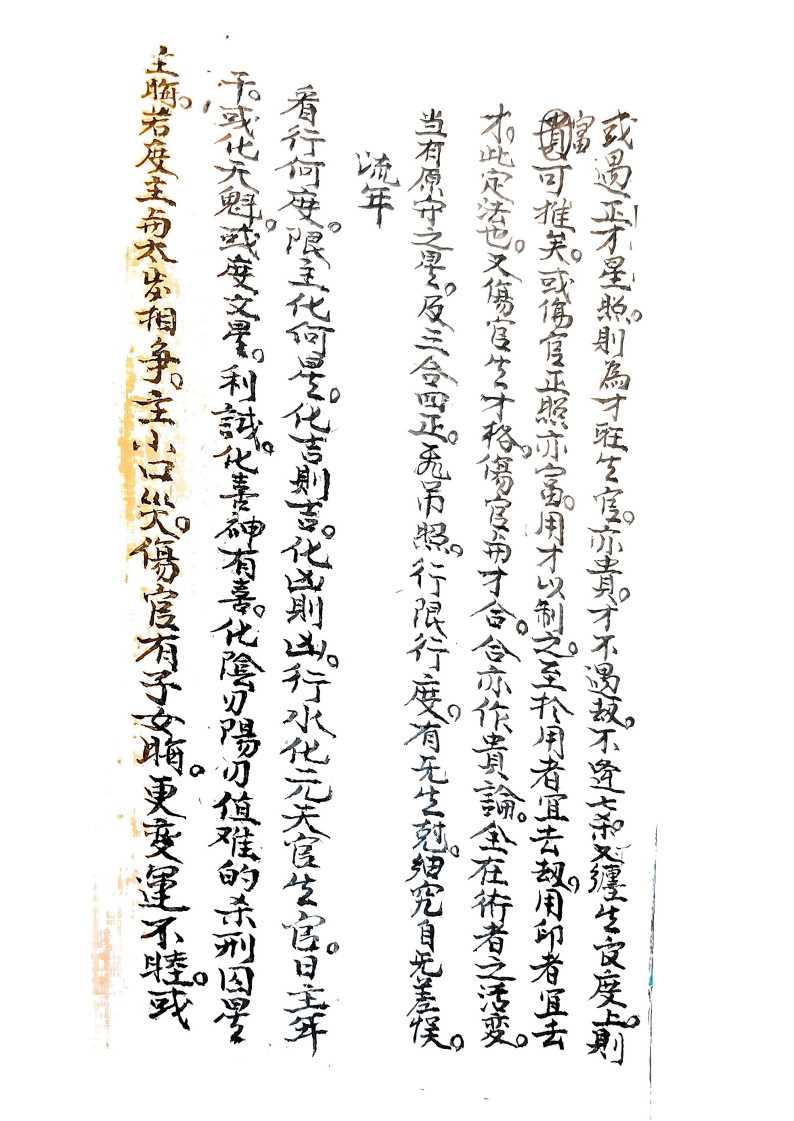 或遇正才星照。則為才旺生官。亦貴。才不遇劫。不逢七杀。又纏生官度上。則
富
貴可推矣。或傷官正照亦富。用才以制之。至於用者宜去劫。用印者宜去
才。此定法也。又傷官生才格。傷官与才合。合亦作貴論。全在術者之活変。
当有原守之星。及三合四正。无吊照。行限行度。有无生尅。細究自无差悮。
流年
看行何度。限主化何星。化吉則吉。化凶則凶。行水化元夫官生官。日主年
干。或化天魁。或度文星。利試。化喜神有喜。化陰刃陽刃值难的杀刑囚星
主晦。若度主与太岁相争。主小口災。傷官有子女晦。更变運不睦。或